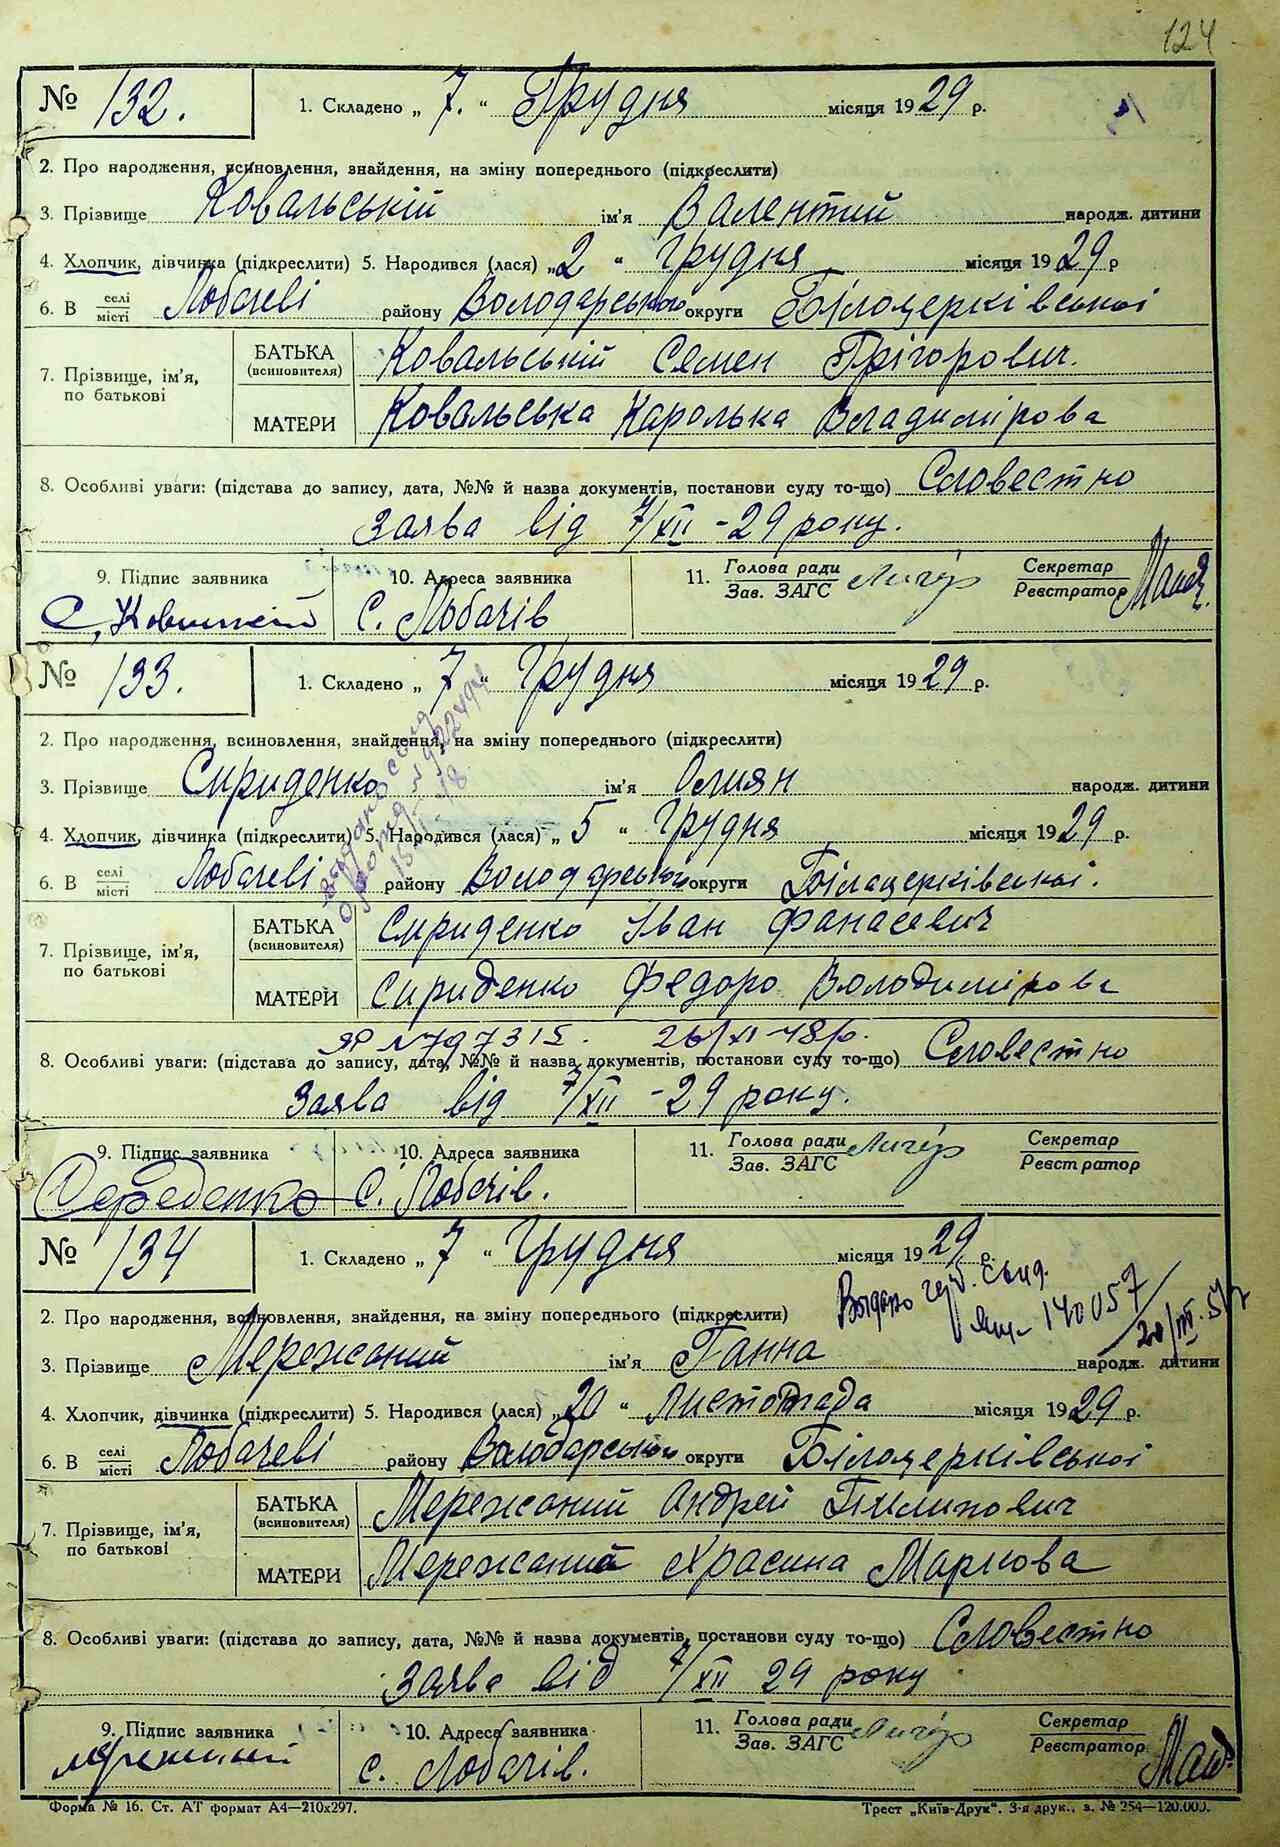 124
№ 132. 1. Складено „ 7. “ Грудня місяця 1929 р.
2. Про народження, всиновлення, знайдення, на зміну попереднього (підкреслити)
3. Прізвище Ковальській ім'я Валентий народж. дитини
4. Хлопчик, дівчинка (підкреслити) 5. Народився (лася) „ 2 “ Грудня місяця 1929 р
6. В селі місті Лобачеві району Володарського округи Білоцерківської
7. Прізвище, ім'я, по батькові
БАТЬКА (всиновителя) Ковальській Семен Грігорович.
МАТЕРИ Ковальська Каролька Владимірова
8. Особливі уваги: (підстава до запису, дата, №№ й назва документів, постанови суду то-що) Словестно
Заява від 7/XII - 29 року.
9. Підпис заявника 10. Адреса заявника 11. Голова ради Зав. ЗАГС Секретар Реєстратор
с. Лобачів
№ 133. 1. Складено „ 7 “ Грудня місяця 1929 р.
2. Про народження, всиновлення, знайдення, на зміну попереднього (підкреслити)
3. Прізвище Сириденко ім'я народж. дитини
4. Хлопчик, дівчинка (підкреслити) 5. Народився (лася) „ 5 “ Грудня місяця 1929 р.
6. В селі місті Лобачеві району Володарського округи Білацерківської.
7. Прізвище, ім'я, по батькові
БАТЬКА (всиновителя) Сириденко Іван Фанасевич
МАТЕРИ Сириденко Федоро Володимірова
№797315. 26/XI 48р.
8. Особливі уваги: (підстава до запису, дата, №№ й назва документів, постанови суду то-що) Словестно
Заява від 7/XII - 29 року.
9. Підпис заявника 10. Адреса заявника 11. Голова ради Зав. ЗАГС Секретар Реєстратор
Середенко с. Лобачів.
№ 134 1. Складено „ 7 “ Грудня місяця 1929 р.
Выдано
140057
2. Про народження, всиновлення, знайдення, на зміну попереднього (підкреслити)
3. Прізвище Мережаний ім'я Ганна народж. дитини
4. Хлопчик, дівчинка (підкреслити) 5. Народився (лася) „ 20 “ Листопада місяця 1929 р.
6. В селі місті Лобачеві району Володарського округи Білоцерківської
7. Прізвище, ім'я, по батькові
БАТЬКА (всиновителя) Мережаний Андрей Пилипович
МАТЕРИ Мережаний Маркова
8. Особливі уваги: (підстава до запису, дата, №№ й назва документів, постанови суду то-що) Словестно
Заява від 7/XII 29 року
9. Підпис заявника 10. Адреса заявника 11. Голова ради Зав. ЗАГС Секретар Реєстратор
с. Лобачів.
Форма № 16. Ст. АТ формат А4—210х297. Трест „Київ-Друк“. 3-я друк., з. № 254—120.000.